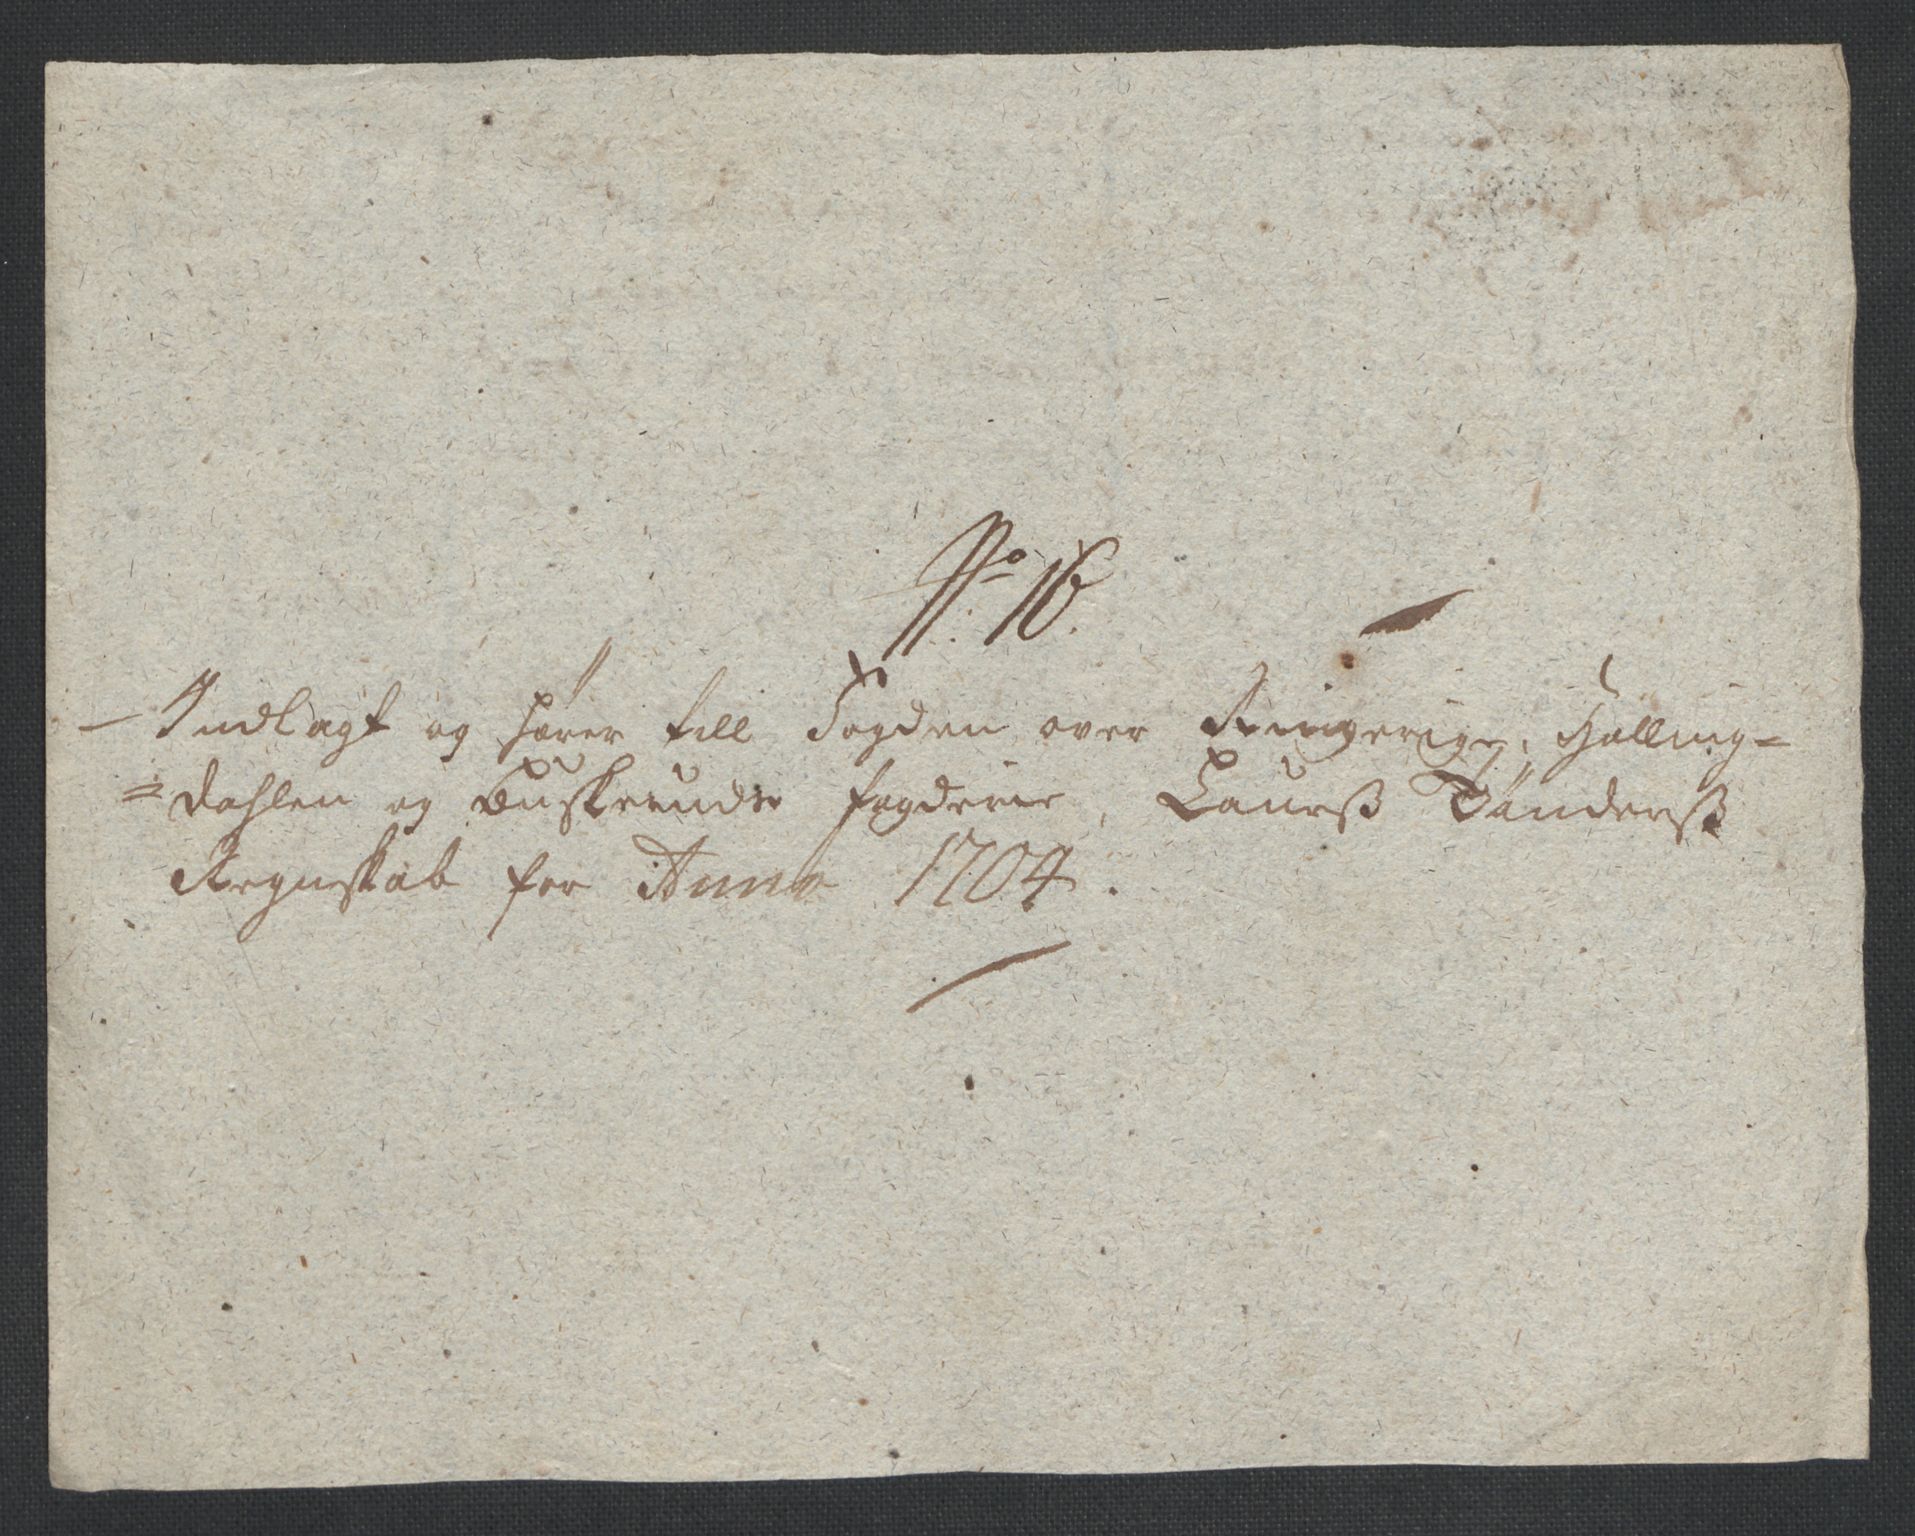 No: 16.
Indlagt og hører till Fogden over Ringerige, Halling=
=dahlen og Buskeruds fogderie, Laurß Tønderß
Regnskab for Anno 1704.